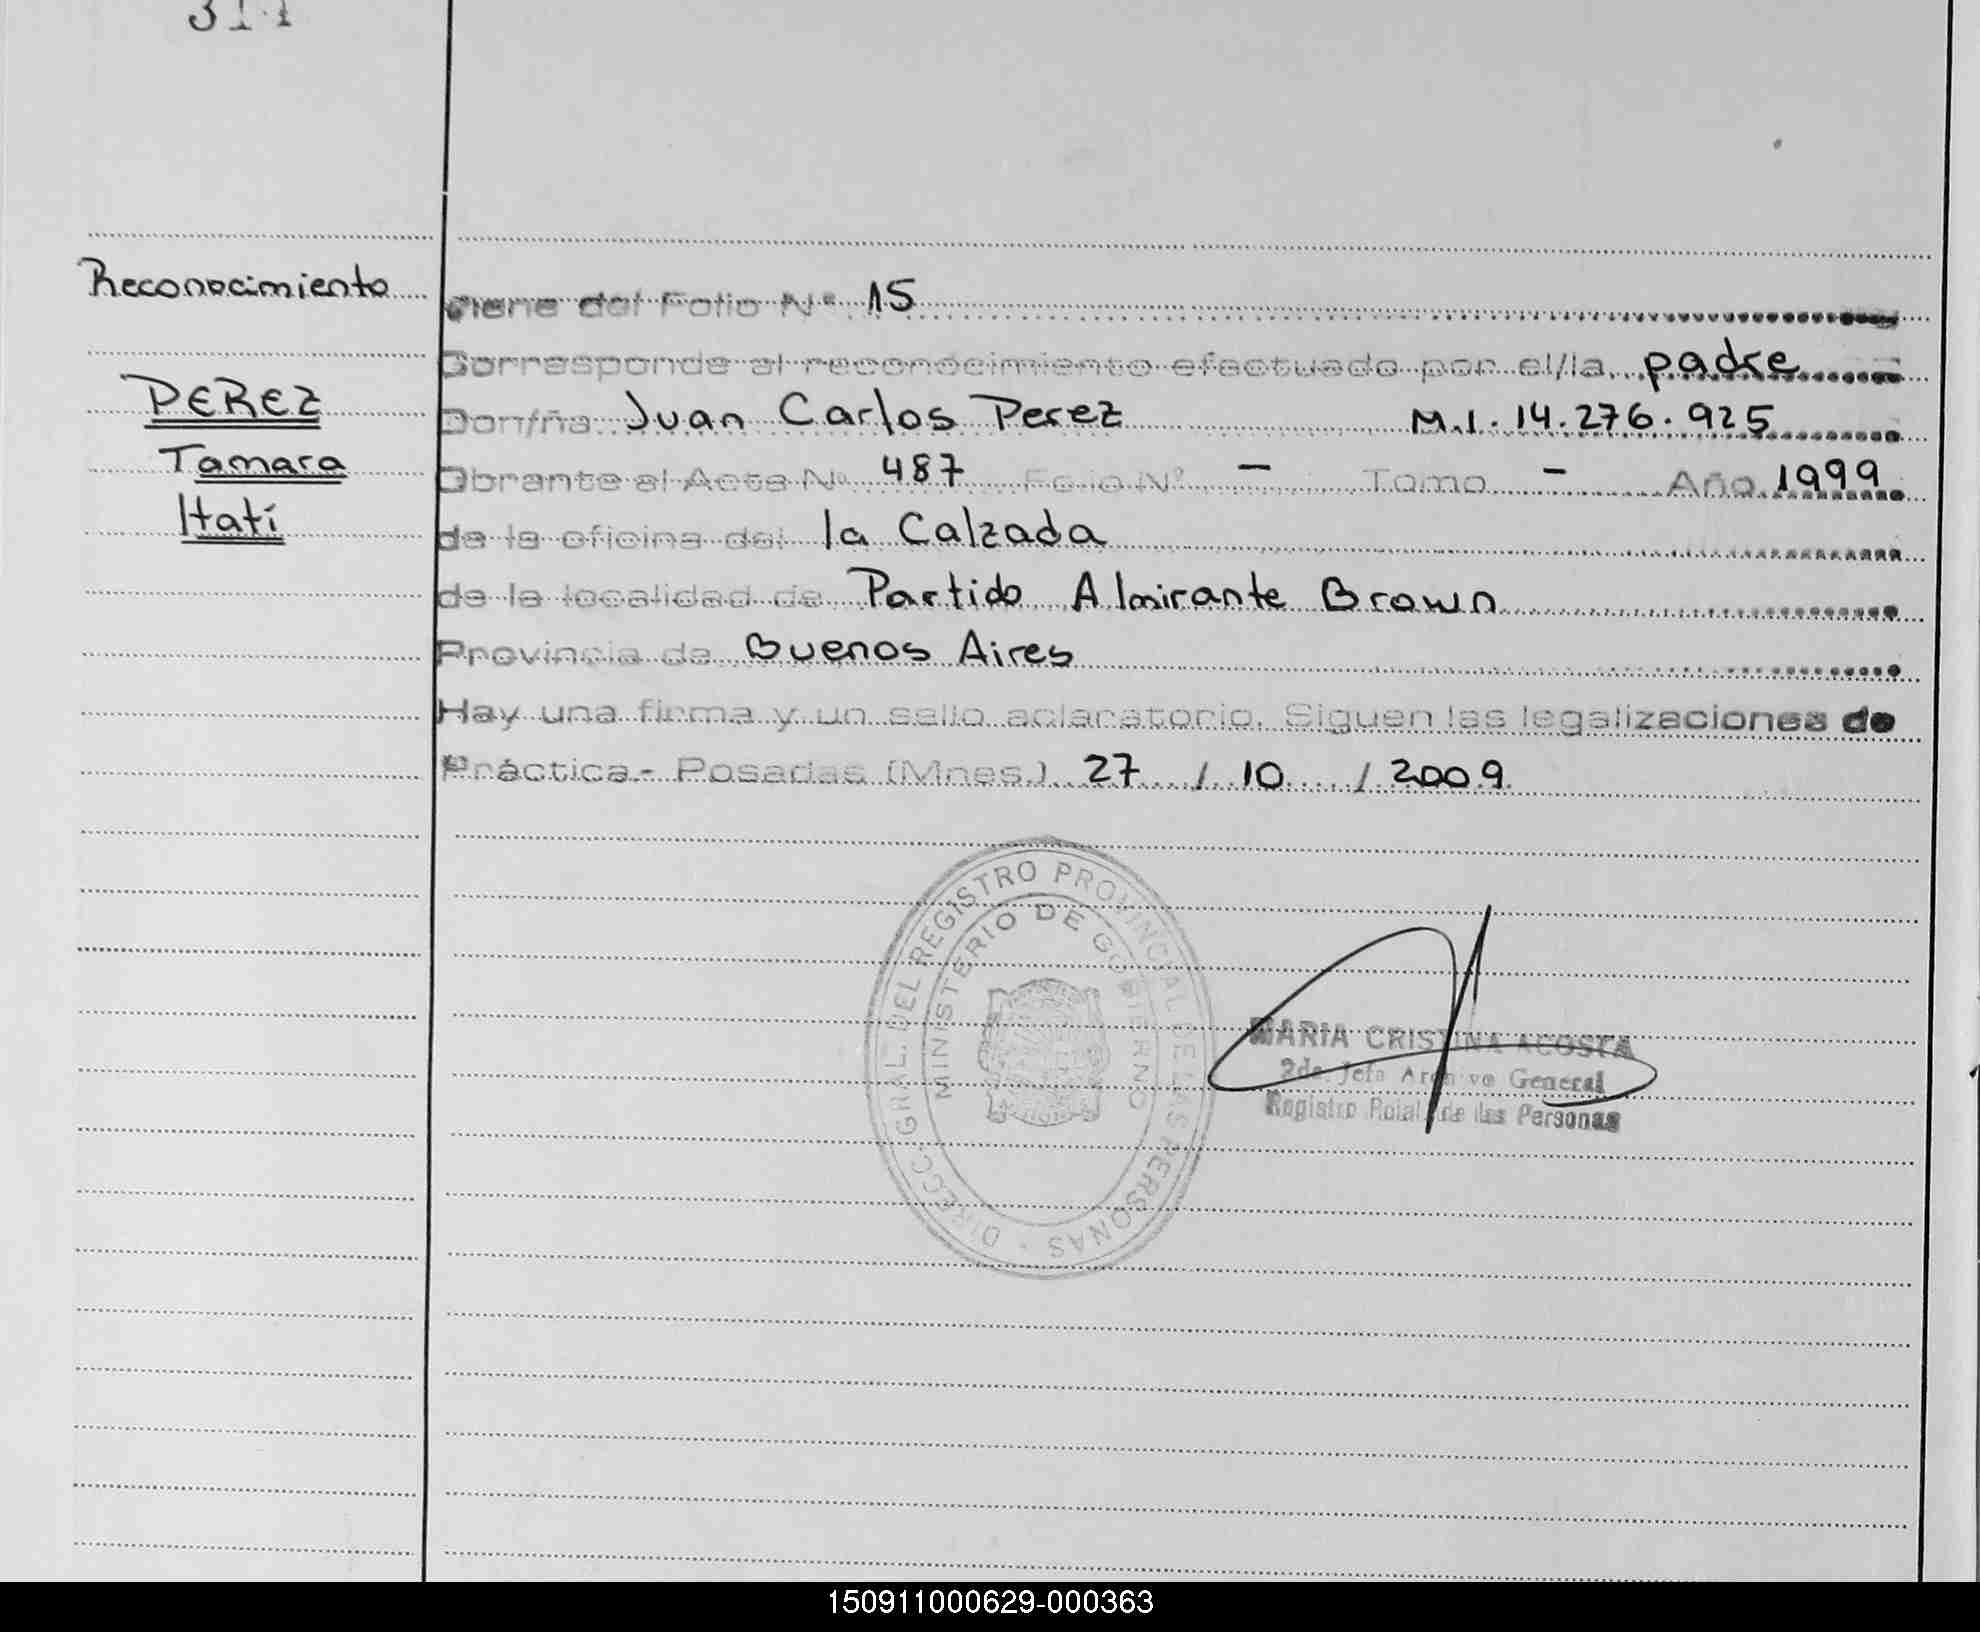 311
Reconocimiento
PEREZ
Tamara
Itatí
Viene del Folio Nº 15
Corresponde al reconocimiento efectuado por el/la padre
Don/ña Juan Carlos Perez M.I. 14.276.925
Obrante al Acta Nº 487 Folio Nº - Tomo - Año 1999
de la oficina del la Calzada
de la localidad de Partido Almirante Brown
Provincia de Buenos Aires
Hay una firma y un sello aclaratorio. Siguen las legalizaciones de
Práctica - Posadas (Mnes.) 27 / 10 / 2009.
DIRECC. GRAL. DEL REGISTRO PROVINCIAL DE LAS PERSONAS
MINISTERIO DE GOBIERNO
MARIA CRISTINA ACOSTA
2da. Jefa Archivo General
Registro Pcial. de las Personas
150911000629-000363